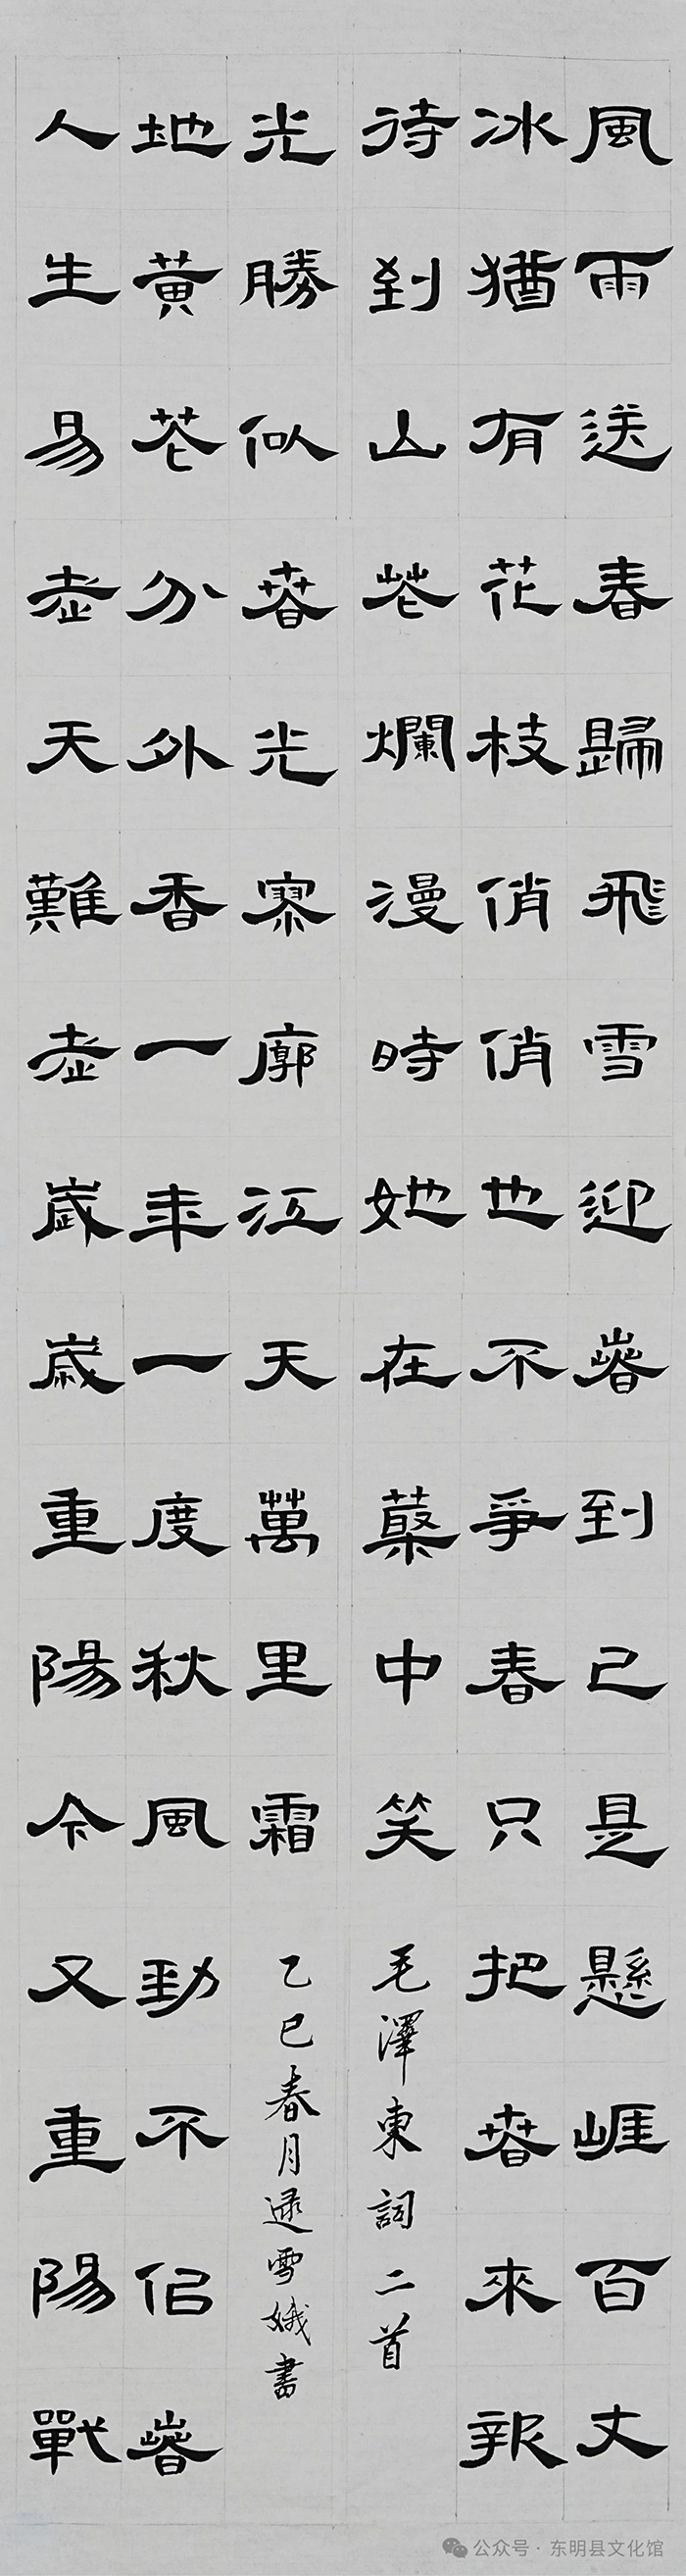 風雨送春歸飛雪迎春到已是懸崖百丈
冰猶有花枝俏俏也不爭春只把春來報
待到山花爛漫時她在叢中笑
毛澤東詞二首
人生易老天難老歲歲重陽今又重陽戰
地黃花分外香一年一度秋風勁不似春
光勝似春光寥廓江天萬里霜
乙巳春月逯雪娥書
公众号 · 东明县文化馆